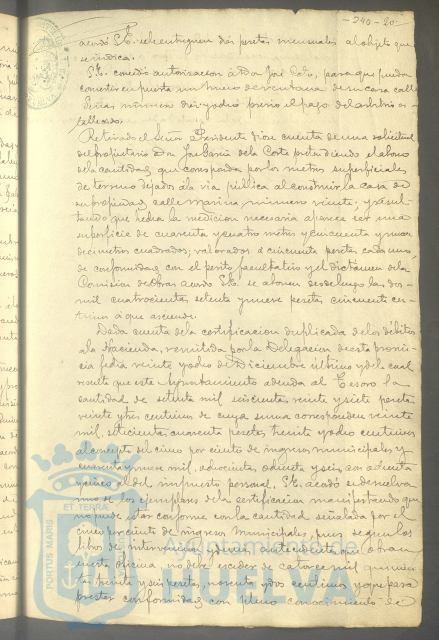 -240-20-
acordó S.E. se le entreguen dos pesetas mensuales al objeto que
se indica.
S.E. concedió autorizacion á Don José para que pueda
convertir en puerta un hueco de ventana de su casa calle
número diez y ocho previo el pago del arbitrio es-
tablecido.
Retirado el Señor Presidente dióse cuenta de una solicitud
del propietario Don José Garcia de la Corte pretendiendo el abono
de la cantidad que corresponda por los metros superficiales
de terreno dejados á la via pública al construir la casa de
su propiedad calle Marina, número veinte; y resul-
tando que hecha la medicion necesaria aparece ser una
superficie de cuarenta y cuatro metros y cincuenta y nueve
decimetros cuadrados; valorados á cincuenta pesetas cada uno,
de conformidad con el perito facultativo y el dictamen de la
Comision de Obras acordó S.E. se abonen desde luego las dos
mil cuatrocientas setenta y nueve pesetas cincuenta cen-
timos á que asciende.
Dada cuenta de la certificacion duplicada de los débitos
á la Hacienda, remitida por la Delegacion de esta provin-
cia fecha veinte y ocho de Diciembre último y de la cual
resulta que este Ayuntamiento adeuda al Tesoro la
cantidad de setenta mil veinte y siete pesetas
veinte y tres centimos de cuya suma corresponden veinte
mil, setecientas cuarenta pesetas, treinta y ocho centimos
al concepto del cinco por ciento de ingresos municipales y
cuarenta y nueve mil, doscientas, ochenta y seis, con ochenta
y cinco al del impuesto personal, S.E. acordó se devuelva
uno de los ejemplares de la certificacion manifestando que
no puede estar conforme con la cantidad señalada por el
cinco por ciento de ingresos municipales, pues segun los
libros de intervencion y demas antecedentes que obran
en esta oficina no debe esceder de catorce mil quinien-
tas treinta y seis pesetas, noventa y dos centimos y que para
prestar conformidad con pleno conocimiento de
PORTUS MARIS
ET TERRÆ
Ayuntamiento de
HUELVA